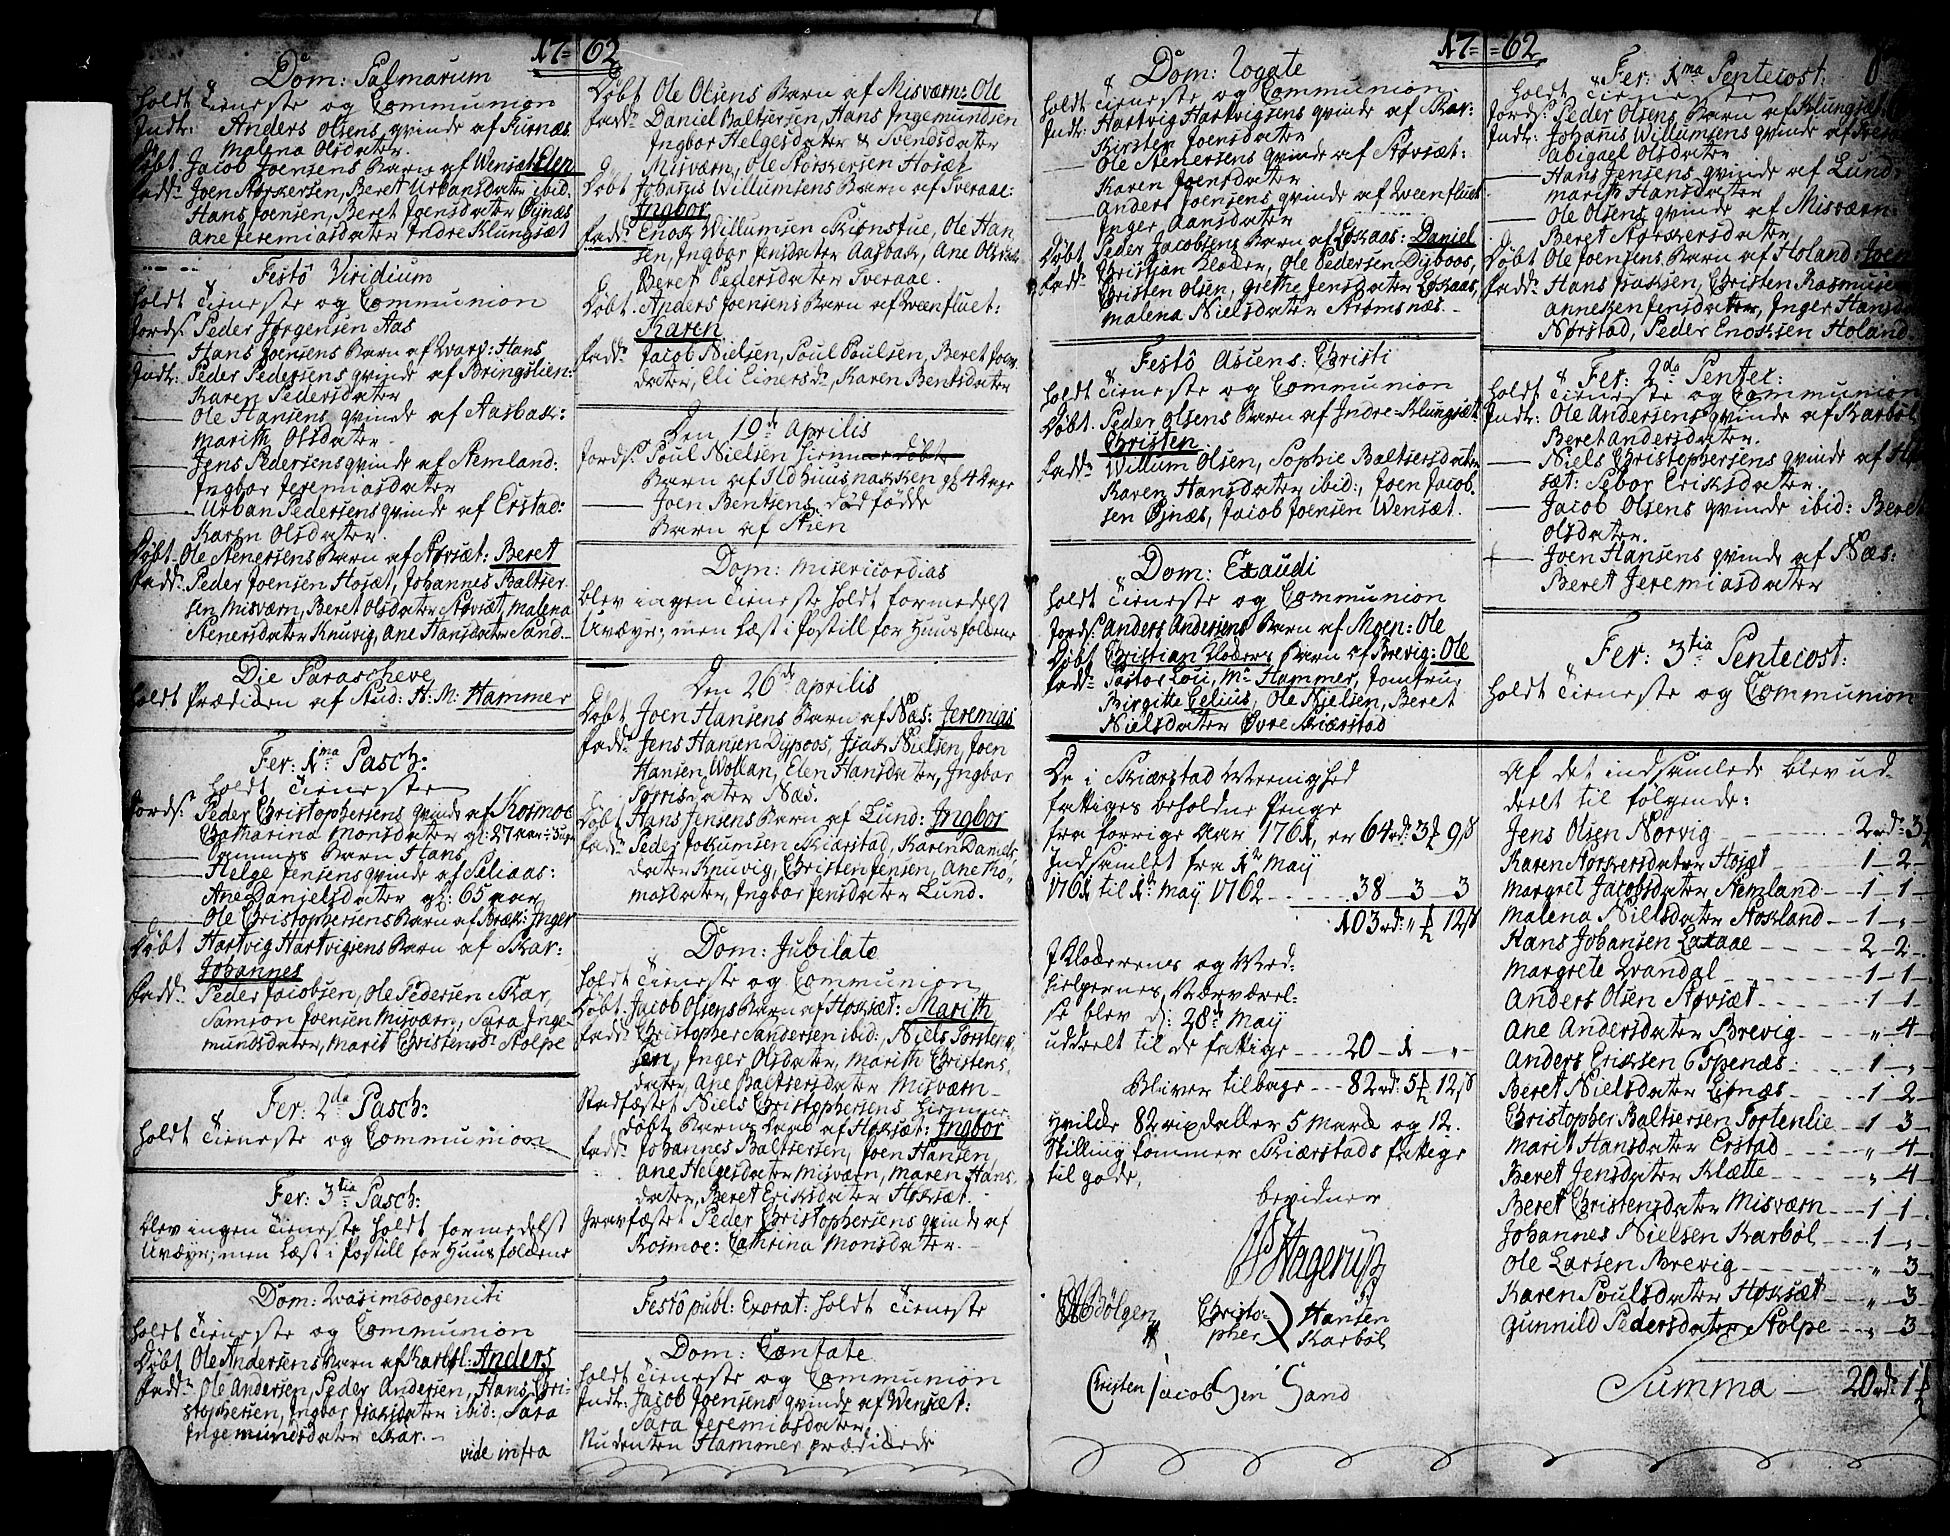 17=62
Dom: Palmarum
holdt Tieneste og Communion
Indtr: Anders Olsens qvinde af Furnæs
Malena Olsdater.
Døbt Jacob Joensens Barn af Wensæt Elen
fadd: Joen Størkersen, Beret Urbansdater ibid.
Hans Joensen, Beret Joensdater Øynæs
Ane Jeremiasdater Indre Klungsæt
Festo Viridium
holdt Tieneste og Communion
Jords: Peder Jørgensen Aas
— Hans Joensens Barn af Qvarv: Hans
Indtr: Peder Pedersens qvinde af Bringslien:
Karen Pedersdater
— Ole Hansens qvinde af Aasbak:
Marith Olsdater
— Jens Pedersens qvinde af Stemland:
Ingbor Jeremiasdater
— Urban Pedersens qvinde af Erstad:
Karen Olsdater.
Døbt Ole Stenersens Barn af Støvsæt: Beret
fadd: Peder Joensen Hosæt, Johannes Baltzer
sen Misværn, Beret Olsdater Støvsæt, Malena
Stenersdater Knuvig, Ane Hansdater Sand
Die Parascheve
holdt Prædiken af Stud: H: M: Hammer
Fer: 1ma Pasch:
holdt Tieneste
Jords: Peder Christophersens qvinde af Kosmoe
Catharina Monsdater gl: 27 aar
— Barn Hans
— Helge Jensens qvinde af Seliaas:
Ane Danielsdater gl: 65 aar
— Ole Christophersens Barn af Bræk: Inger
Døbt Hartvig Hartvigsens Barn af Kar:
Johannes
fadd: Peder Jacobsen, Ole Pedersen Kar,
Samson Joensen Misværn, Sara Inge-
mundsdater, Marit Christensd: Stolpe
Fer: 2da Pasch:
holdt Tieneste og Communion
Fer: 3tia Pasch:
blev ingen Tieneste holdt formedelst
Uvæyr; men læst i Postill for Huusfolckene
Dom: Qvasimodogeniti
holdt Tieneste og Communion
Døbt Ole Andersens Barn af Karbøl: Anders
fadd: Ole Andersen, Peder Andersen, Hans Chri-
stophersen, Ingbor Isaksdater ibid:, Sara
Ingemundsdater Kar.
vide infra
Døbt Ole Olsens Barn af Misværn: Ole
fadd: Daniel Baltzersen, Hans Ingemundsen
Ingbor Helgesdater & Svendsdater
Misværn, Ole Størkersen Hosæt
Døbt Johannis Willumsens Barn af Tveraae:
Ingbor
fadd: Enok Willumsen Skionstue, Ole Han
sen, Ingbor Jensdater Aasbak, Ane Olsdat
Beret Pedersdater Tveraae.
Døbt Anders Joensens Barn af Qvænfluet:
Karen
fadd: Jacob Nielsen, Poul Poulsen, Beret Joens
dater, Eli Einersdr, Karen Bentsdater
Den 19de Aprilis
Jords: Poul Nielsen
Barn af Ildhuusnakken gl 4 Dage
— Joen Bentsens dødfødde
Barn af Stien
Dom: Misericordias
blev ingen Tieneste holdt formedelst
Uvæyr; men læst i Postill for Huusfolckene
Den 26de Aprilis
Døbt Joen Hansens Barn af Næs: Jeremias
fadd: Jens Hansen Dypoos, Isak Nielsen, Joen
Hansen Wollan, Elen Hansdater, Ingbor
Torrisdater Næs.
Døbt Hans Jensens Barn af Lund: Ingbor
fadd: Peder Jokumsen Skiærstad, Karen Daniels
dater Knuvig, Christen Jensen, Ane Tho-
masdater, Ingbor Jensdater Lund.
Dom: Jubilate
holdt Tieneste og Communion
Døbt Jacob Olsens Barn af Hoksæt: Marith
fadd: Christopher Sandersen ibid:, Niels Torstens-
sen, Inger Olsdater, Marith Christens-
dater, Ane Baltzersdater Misværn
Stadfæstet Niels Christophersens hiemme-
døbt Barn af Hoksæt: Ingbor
fadd: Johannes Baltzersen, Joen Hansen,
Ane Helgesdater Misværn, Maren Hans
dater, Beret Eriksdater Hoksæt.
Gravfæstet Peder Christophersens qvinde af
Kosmoe: Cathrina Monsdater.
Festo publ: Exorat: holdt Tieneste
Dom: Cantate
holdt Tieneste og Communion
Indtr: Jacob Joensens qvinde af Wensæt:
Sara Jeremiasdater
Studenten Hammer prædikede
17=62
Dom: Rogate
holdt Tieneste og Communion
Indtr: Hartvig Hartvigsens qvinde af Kar:
Kirsten Joensdater
— Ole Stenersens qvinde af Støvsæt:
Karen Joensdater
— Anders Joensens qvinde af Qvænfluet
Inger Hansdater
Døbt Peder Jacobsens Barn af Løkaas: Daniel
fadd: Christian Kloder, Ole Pedersen Dypoos,
Christen Olsen, Grethe Jensdater Løkaas,
Malena Nielsdater Strømsnæs.
Festo Ascens: Christi
holdt Tieneste og Communion
Døbt Peder Olsens Barn af Indre Klungsæt
Christen
fadd: Willum Olsen, Sophie Baltzersdater
Karen Hansdater ibid:, Joen Jacob
sen Øynæs, Jacob Joensen Wensæt.
Dom: Exaudi
holdt Tieneste og Communion
Jords: Anders Andersens Barn af Moen: Ole
Døbt Christian Kloders Barn af Brevig: Ole
fadd: Pastor Loci, Mr Hammer, Jomfrue
Birgitte Celius, Ole Nielsen, Beret
Nielsdater Øvre Skiærstad
De i Skiærstad Meenighed
fattiges beholdne Penge
fra forrige Aar 1761, er 64 rd: 3 ƚ 9 β
Indsamlet fra 1te May
1761 til 1te May 1762 38 — 3 — 3
103 rd: „ 12 β
I Kloderenes og Med-
hielpernes Nærværel-
se blev d: 28de May
uddeelt til de fattige 20 — 1 — „
Bliver tilbage 82 rd: 5 12 β
Hvilke 82 rixdaller 5 Mark og 12
Skilling kommer Skiærstads fattige
til gode,
bevidner
Hagerup
Bølgen
Christo- Hansen
pher Karbøl
Christen Jacobsen Sand
Fer: 1ma Pentecost:
holdt Tieneste
Jords: Peder Olsens Barn af Klungsæt
Indtr: Johanis Willumsens qvinde af
Abigael Olsdater
— Hans Jensens qvinde af Lund:
Marith Hansdater
— Ole Olsens qvinde af Misværn:
Beret Størkersdater
Døbt Ole Joensens Barn af Holand: Joen
fadd: Hans Isaksen, Christen Rasmusen
Anneken Jensdater, Inger Hansdr
Nørstad, Peder Enoksen Holand
Fer: 2da Pentec:
holdt Tieneste og Communion
Indtr: Ole Andersens qvinde af Karbøl
Beret Andersdater.
— Niels Christophersens qvinde af
sæt: Sebor Eriksdater
— Jacob Olsens qvinde ibid: Beret
Olsdater.
— Joen Hansens qvinde af Næs:
Beret Jeremiasdater
Fer: 3tia Pentecost:
holdt Tieneste og Communion
Af det indsamlede blev ud-
deelt til følgende:
Jens Olsen Nørvig 2 rd: 3
Karen Størkersdater Hosæt 1 — 2
Margret Jacobsdater Stemland 1 — 1
Malena Nielsdater Stokland 1 — „
Hans Johansen Laxaae 2 — 2
Margrete Qvandal 1 — 1
Anders Olsen Støvsæt 1 — 1
Ane Andersdater Brevig „ 4
Anders Eriksen Espenæs 1 — „
Beret Nielsdater Leinæs 1 — 2
Christopher Baltzersen Tortenlie 1 — 3
Marit Hansdater Erstad „ 4
Beret Jensdater Klætte „ 4
Beret Christensdater Misværn 1 — 1
Johannes Nielsen Karbøl 1 — „
Ole Larsen Brevig „ 3
Karen Poulsdater Høksæt „ 3
Gunnild Pedersdater Stolpe „ 3
Summa — 20 rd: 1